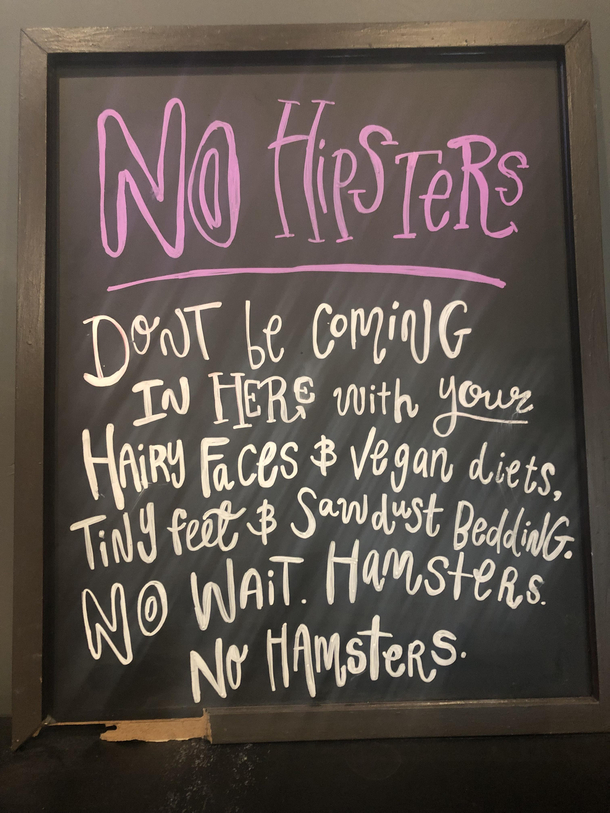 NO HipSTeRS
DONT be COMiNG
IN HERE with your
HAiRY FACes & Vegan diets,
TiNY feet & Sawdust BeddiNG.
NO WAiT. HAMSteRs.
No HAMsteRs.